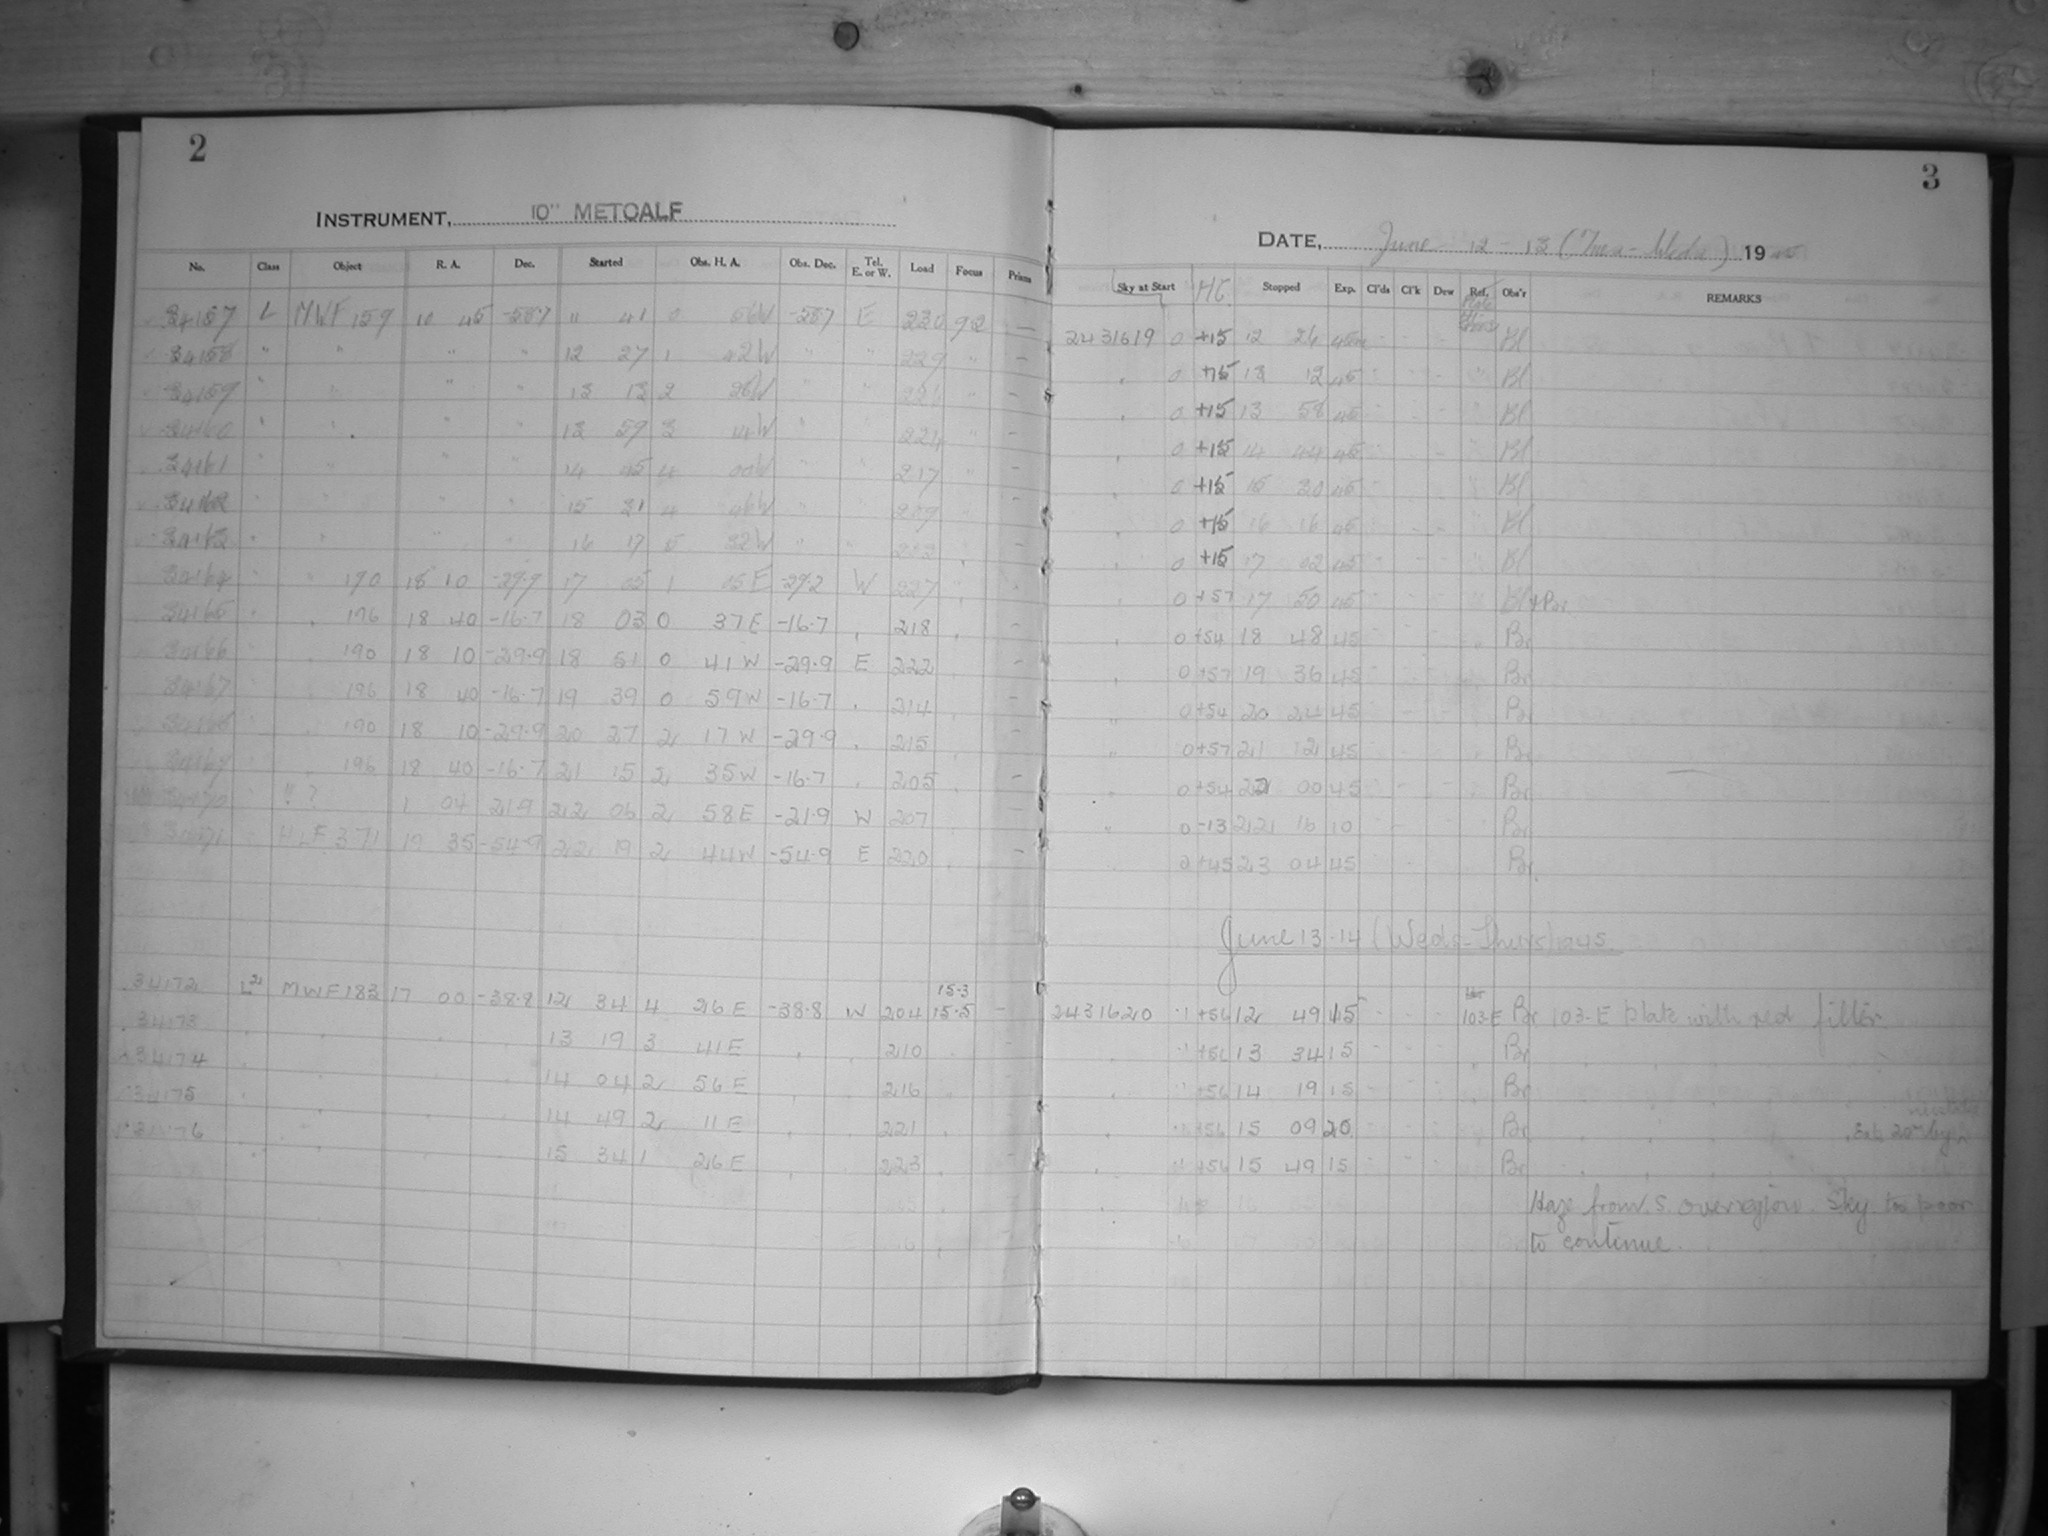 2
INSTRUMENT, 10" METCALF
No. Class Object R. A. Dec. Started Obs. H. A. Obs. Dec. Tel. E. or W. Load Focus Prisms
34157 L MWF 159 10 45 -58.7 11 41 0 56W -58.7 E 230 92 —
34158 " " " " 12 27 1 42W " " 229 " —
34159 " " " " 13 13 2 28W " " " —
34160 " " " 13 59 3 14W " " 224 " —
34161 " " " " 14 45 4 00W " " 217 " —
34162 " " " " 15 31 4 46W " " 209 —
34163 " " " " 16 17 5 32W " " —
34164 " " 190 18 10 -29.9 17 05 1 05E -29.2 W 227 "
34165 " " 196 18 40 -16.7 18 03 0 37E -16.7 " 218 —
34166 " 190 18 10 -29.9 18 51 0 41W -29.9 E 222 —
34167 " 196 18 40 -16.7 19 39 0 59W -16.7 " 214 —
34168 " 190 18 10 -29.9 20 27 2 17W -29.9 " 215 —
34169 " 196 18 40 -16.7 21 15 2 35W -16.7 " 205 —
34170 " ? 1 04 -21.9 22 06 2 58E -21.9 W 207
34171 HLF 371 19 35 -54.9 22 19 2 44W -54.9 E 220 —
34172 L MWF 183 17 00 -38.8 12 34 4 26E -38.8 W 204 15.3 15.5 —
34173 " " " 13 19 3 41E " " 210 " —
34174 " " " 14 04 2 56E " " 216 —
34175 " " " 14 49 2 11E " " 221 " —
34176 " " 15 34 1 26E " " 223 " —
3
DATE, June 12 - 13 (Tues - Weds) 1945
Sky at Start HC Stopped Exp. Cl'ds Cl'k Dew Ref. Obs'r REMARKS
2431619 0 +15 12 26 45m - - - Bl
" 0 +15 13 12 45 - - - " Bl
" 0 +15 13 58 45 - - - " Bl
" 0 +15 14 44 45 - - - " Bl
" 0 +15 15 30 45 - - - " Bl
" 0 +15 16 16 45 - - - " Bl
" 0 +15 17 02 45 - - - " Bl
" 0 +57 17 50 45 - - - " Bl + Br
" 0 +54 18 48 45 - - - " Br
" 0 +57 19 36 45 - - - " Br
" 0 +54 20 24 45 - - - " Br
" 0 +57 21 12 45 - - - " Br
" 0 +54 22 00 45 - - - " Br
" 0 -13 22 16 10 - - Br
" 0 +45 23 04 45 - - Br
June 13-14 (Weds-Thurs) 1945.
2431620 .1 +56 12 49 15 - - - 103-E Br 103-E plate with red filter
" .1 +56 13 34 15 - - - " Br " " " "
" .1 +56 14 19 15 - - - " Br " " " "
" .1 +56 15 09 20 - - - " Br " " " " Exp. 20m by mistake
" .1 +56 15 49 15 - - - Br " " " "
Haze from S. over region. Sky too poor
to continue.